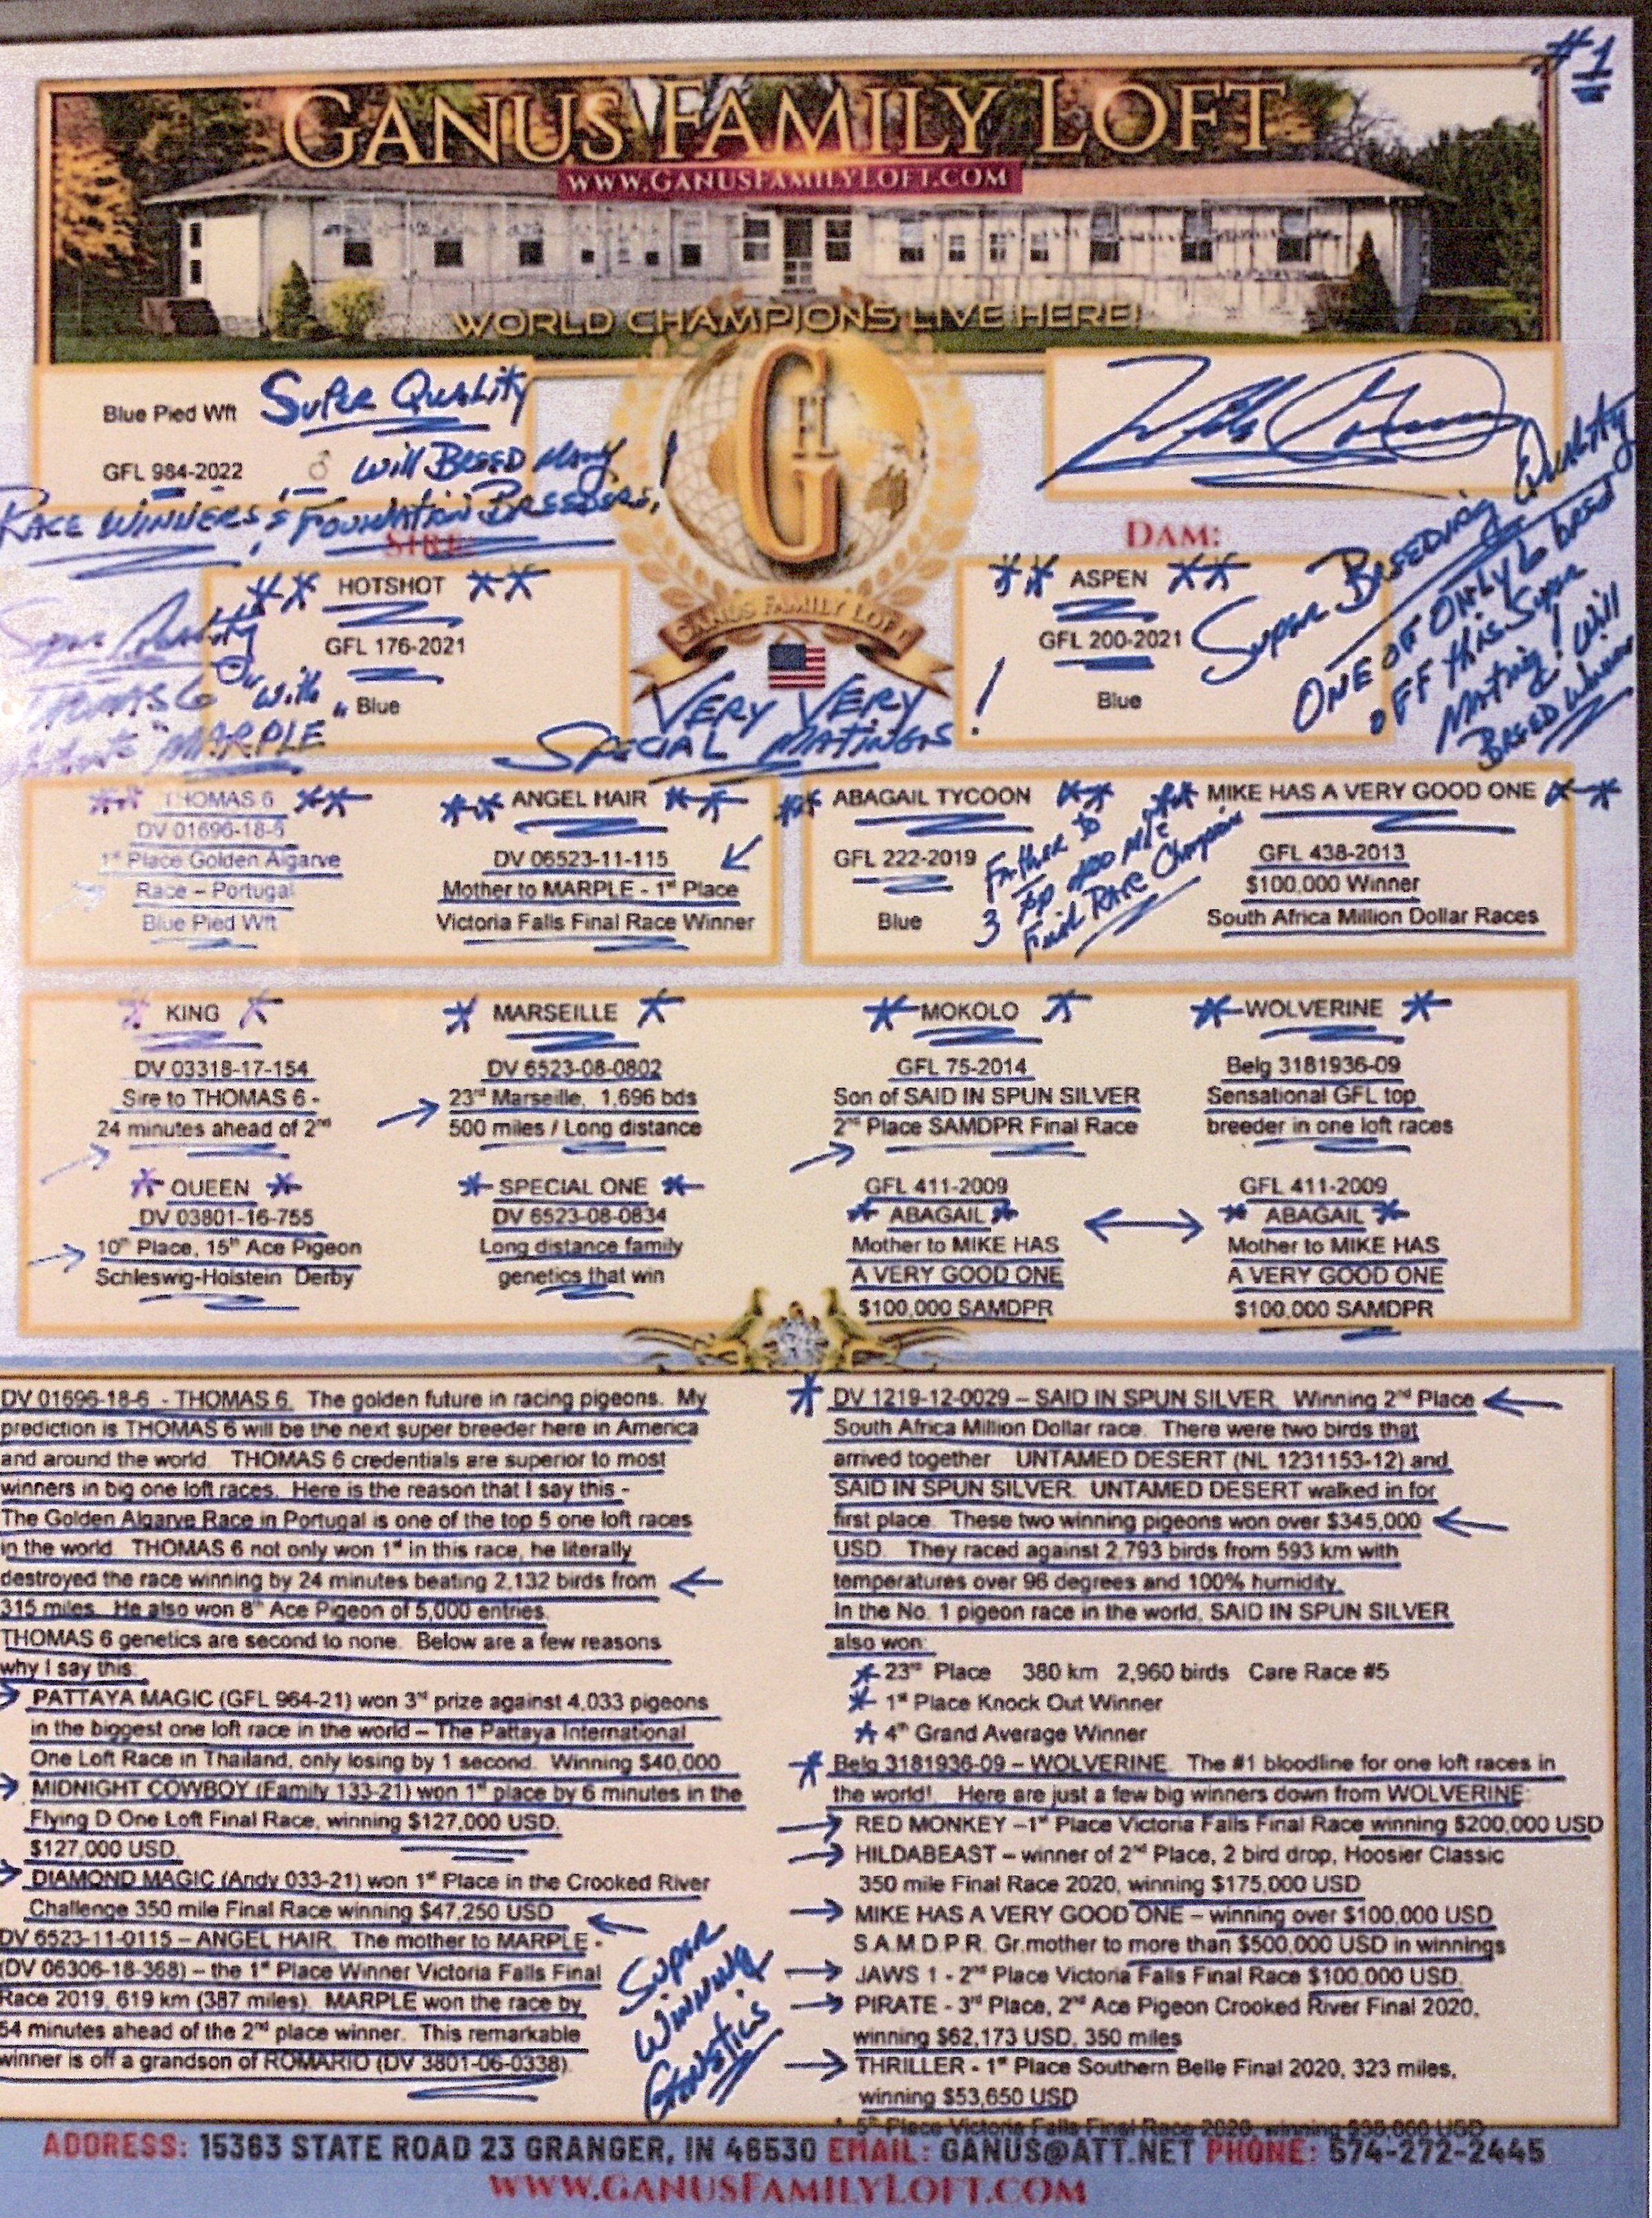 #1
GANUS FAMILY LOFT
WWW.GANUSFAMILYLOFT.COM
WORLD CHAMPIONS LIVE HERE!
G
FL
GANUS FAMILY LOFT
Blue Pied Wft
Super Quality
GFL 984-2022 ♂
Will Breed Many
Race Winners & Foundation Breeders!
SIRE:
** HOTSHOT **
GFL 176-2021
Blue
Super Quality
THOMAS 6 with
"MARPLE"
VERY VERY
SPECIAL MATINGS!
DAM:
** ASPEN **
GFL 200-2021
Blue
Super Breeding Quality
ONE OF ONLY 6 bred
off this Super
Mating! Will
Breed Winners
** THOMAS 6 **
DV 01696-18-6
1st Place Golden Algarve
Race – Portugal
Blue Pied Wft
** ANGEL HAIR **
DV 06523-11-115
Mother to MARPLE - 1st Place
Victoria Falls Final Race Winner
** ABAGAIL TYCOON **
GFL 222-2019
Blue
Father to
3 400 Mile
Final Race Champions
** MIKE HAS A VERY GOOD ONE **
GFL 438-2013
$100,000 Winner
South Africa Million Dollar Races
* KING *
DV 03318-17-154
Sire to THOMAS 6 -
24 minutes ahead of 2nd
* QUEEN *
DV 03801-16-755
10th Place, 15th Ace Pigeon
Schleswig-Holstein Derby
* MARSEILLE *
DV 6523-08-0802
23rd Marseille, 1,696 bds
500 miles / Long distance
* SPECIAL ONE *
DV 6523-08-0834
Long distance family
genetics that win
* MOKOLO *
GFL 75-2014
Son of SAID IN SPUN SILVER
2nd Place SAMDPR Final Race
GFL 411-2009
* ABAGAIL *
Mother to MIKE HAS
A VERY GOOD ONE
$100,000 SAMDPR
* WOLVERINE *
Belg 3181936-09
Sensational GFL top
breeder in one loft races
GFL 411-2009
* ABAGAIL *
Mother to MIKE HAS
A VERY GOOD ONE
$100,000 SAMDPR
DV 01696-18-6 - THOMAS 6. The golden future in racing pigeons. My
prediction is THOMAS 6 will be the next super breeder here in America
and around the world. THOMAS 6 credentials are superior to most
winners in big one loft races. Here is the reason that I say this -
The Golden Algarve Race in Portugal is one of the top 5 one loft races
in the world. THOMAS 6 not only won 1st in this race, he literally
destroyed the race winning by 24 minutes beating 2,132 birds from
315 miles. He also won 8th Ace Pigeon of 5,000 entries.
THOMAS 6 genetics are second to none. Below are a few reasons
why I say this:
PATTAYA MAGIC (GFL 964-21) won 3rd prize against 4,033 pigeons
in the biggest one loft race in the world – The Pattaya International
One Loft Race in Thailand, only losing by 1 second. Winning $40,000
MIDNIGHT COWBOY (Family 133-21) won 1st place by 6 minutes in the
Flying D One Loft Final Race, winning $127,000 USD.
$127,000 USD.
DIAMOND MAGIC (Andy 033-21) won 1st Place in the Crooked River
Challenge 350 mile Final Race winning $47,250 USD
DV 6523-11-0115 – ANGEL HAIR. The mother to MARPLE -
(DV 06306-18-368) – the 1st Place Winner Victoria Falls Final
Race 2019, 619 km (387 miles). MARPLE won the race by
54 minutes ahead of the 2nd place winner. This remarkable
winner is off a grandson of ROMARIO (DV 3801-06-0338).
Super
Winning
Genetics
* DV 1219-12-0029 – SAID IN SPUN SILVER. Winning 2nd Place
South Africa Million Dollar race. There were two birds that
arrived together UNTAMED DESERT (NL 1231153-12) and
SAID IN SPUN SILVER. UNTAMED DESERT walked in for
first place. These two winning pigeons won over $345,000
USD. They raced against 2,793 birds from 593 km with
temperatures over 96 degrees and 100% humidity.
In the No. 1 pigeon race in the world, SAID IN SPUN SILVER
also won:
* 23rd Place 380 km 2,960 birds Care Race #5
* 1st Place Knock Out Winner
* 4th Grand Average Winner
* Belg 3181936-09 – WOLVERINE. The #1 bloodline for one loft races in
the world!. Here are just a few big winners down from WOLVERINE:
RED MONKEY –1st Place Victoria Falls Final Race winning $200,000 USD
HILDABEAST – winner of 2nd Place, 2 bird drop, Hoosier Classic
350 mile Final Race 2020, winning $175,000 USD
MIKE HAS A VERY GOOD ONE – winning over $100,000 USD
S.A.M.D.P.R. Gr.mother to more than $500,000 USD in winnings
JAWS 1 - 2nd Place Victoria Falls Final Race $100,000 USD.
PIRATE - 3rd Place, 2nd Ace Pigeon Crooked River Final 2020,
winning $62,173 USD, 350 miles
THRILLER - 1st Place Southern Belle Final 2020, 323 miles,
winning $53,650 USD
* 5th Place Victoria Falls Final Race 2020, winning
ADDRESS: 15363 STATE ROAD 23 GRANGER, IN 46530 EMAIL: GANUS@ATT.NET PHONE: 574-272-2445
WWW.GANUSFAMILYLOFT.COM